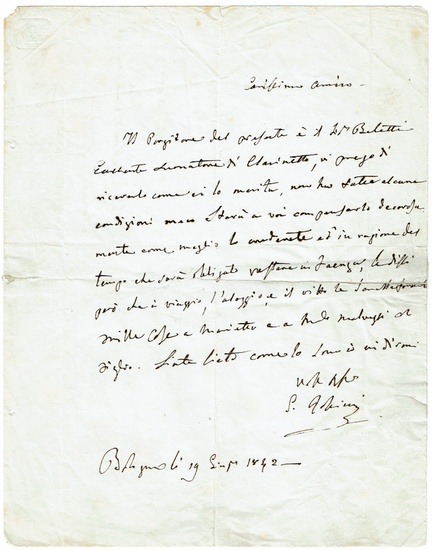 Carissimo amico
Il Porgitore del presente è il Sr Beletti
Suonatore di Clarinetto, vi prego di
riceverlo come ei lo merita, non ho fatto alcune
condizioni ma Starà a voi compensarlo decorosa
mente come meglio lo crederete ed in ragione del
tempo che sarà obligato restare in Faenza, le dissi
però che il viaggio, l'aloggio, e il vitto le
mille Cose a Marietta e a
figlio. State lieto come lo Sono e mi dico
Vost Affo
G.
Bologna li 19 Giugo 1842